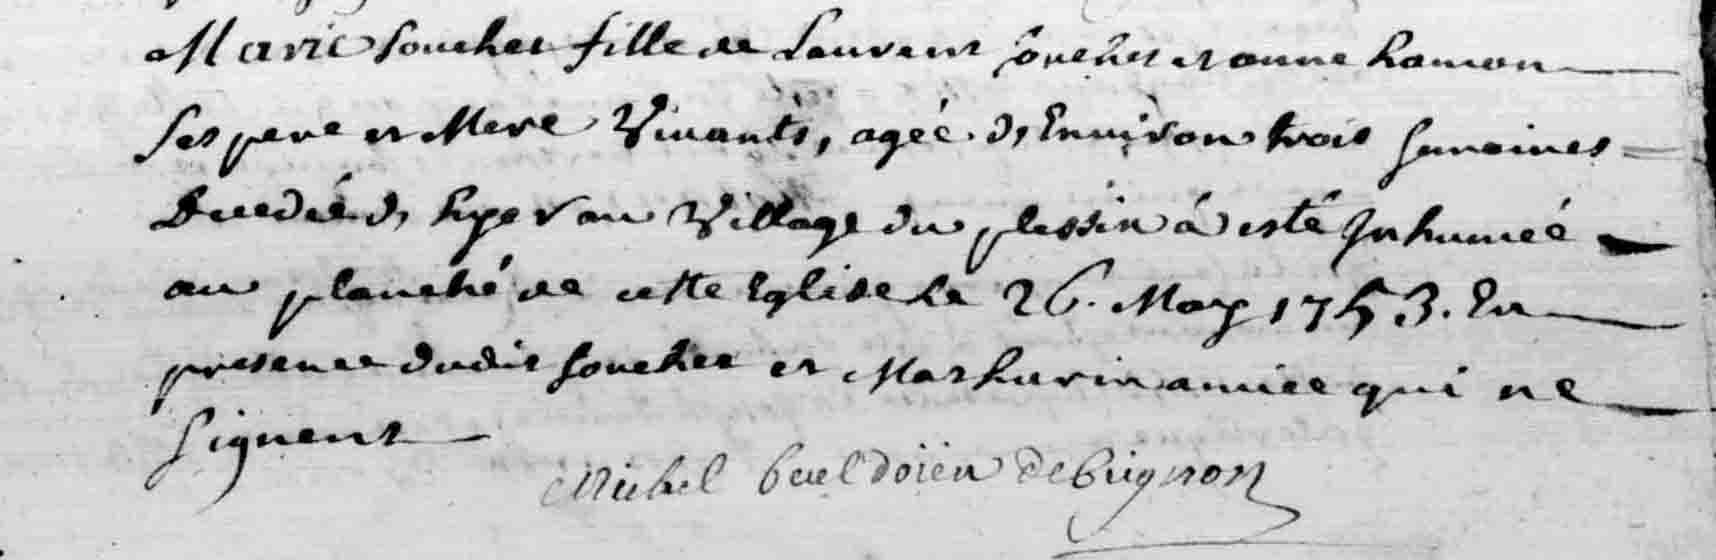 Marie Souchet fille de Laurent Souchet et anne hamon
Ses pere et Mere Vivants, agée d'Environ trois Semaines
Decedée d'hyer au Village du plessix à esté Inhumée
au planché de cette Eglise Le 26. May 1753. En
presence dudit Souchet et Mathurin amice qui ne
Signent
Michel doïen de Guignon